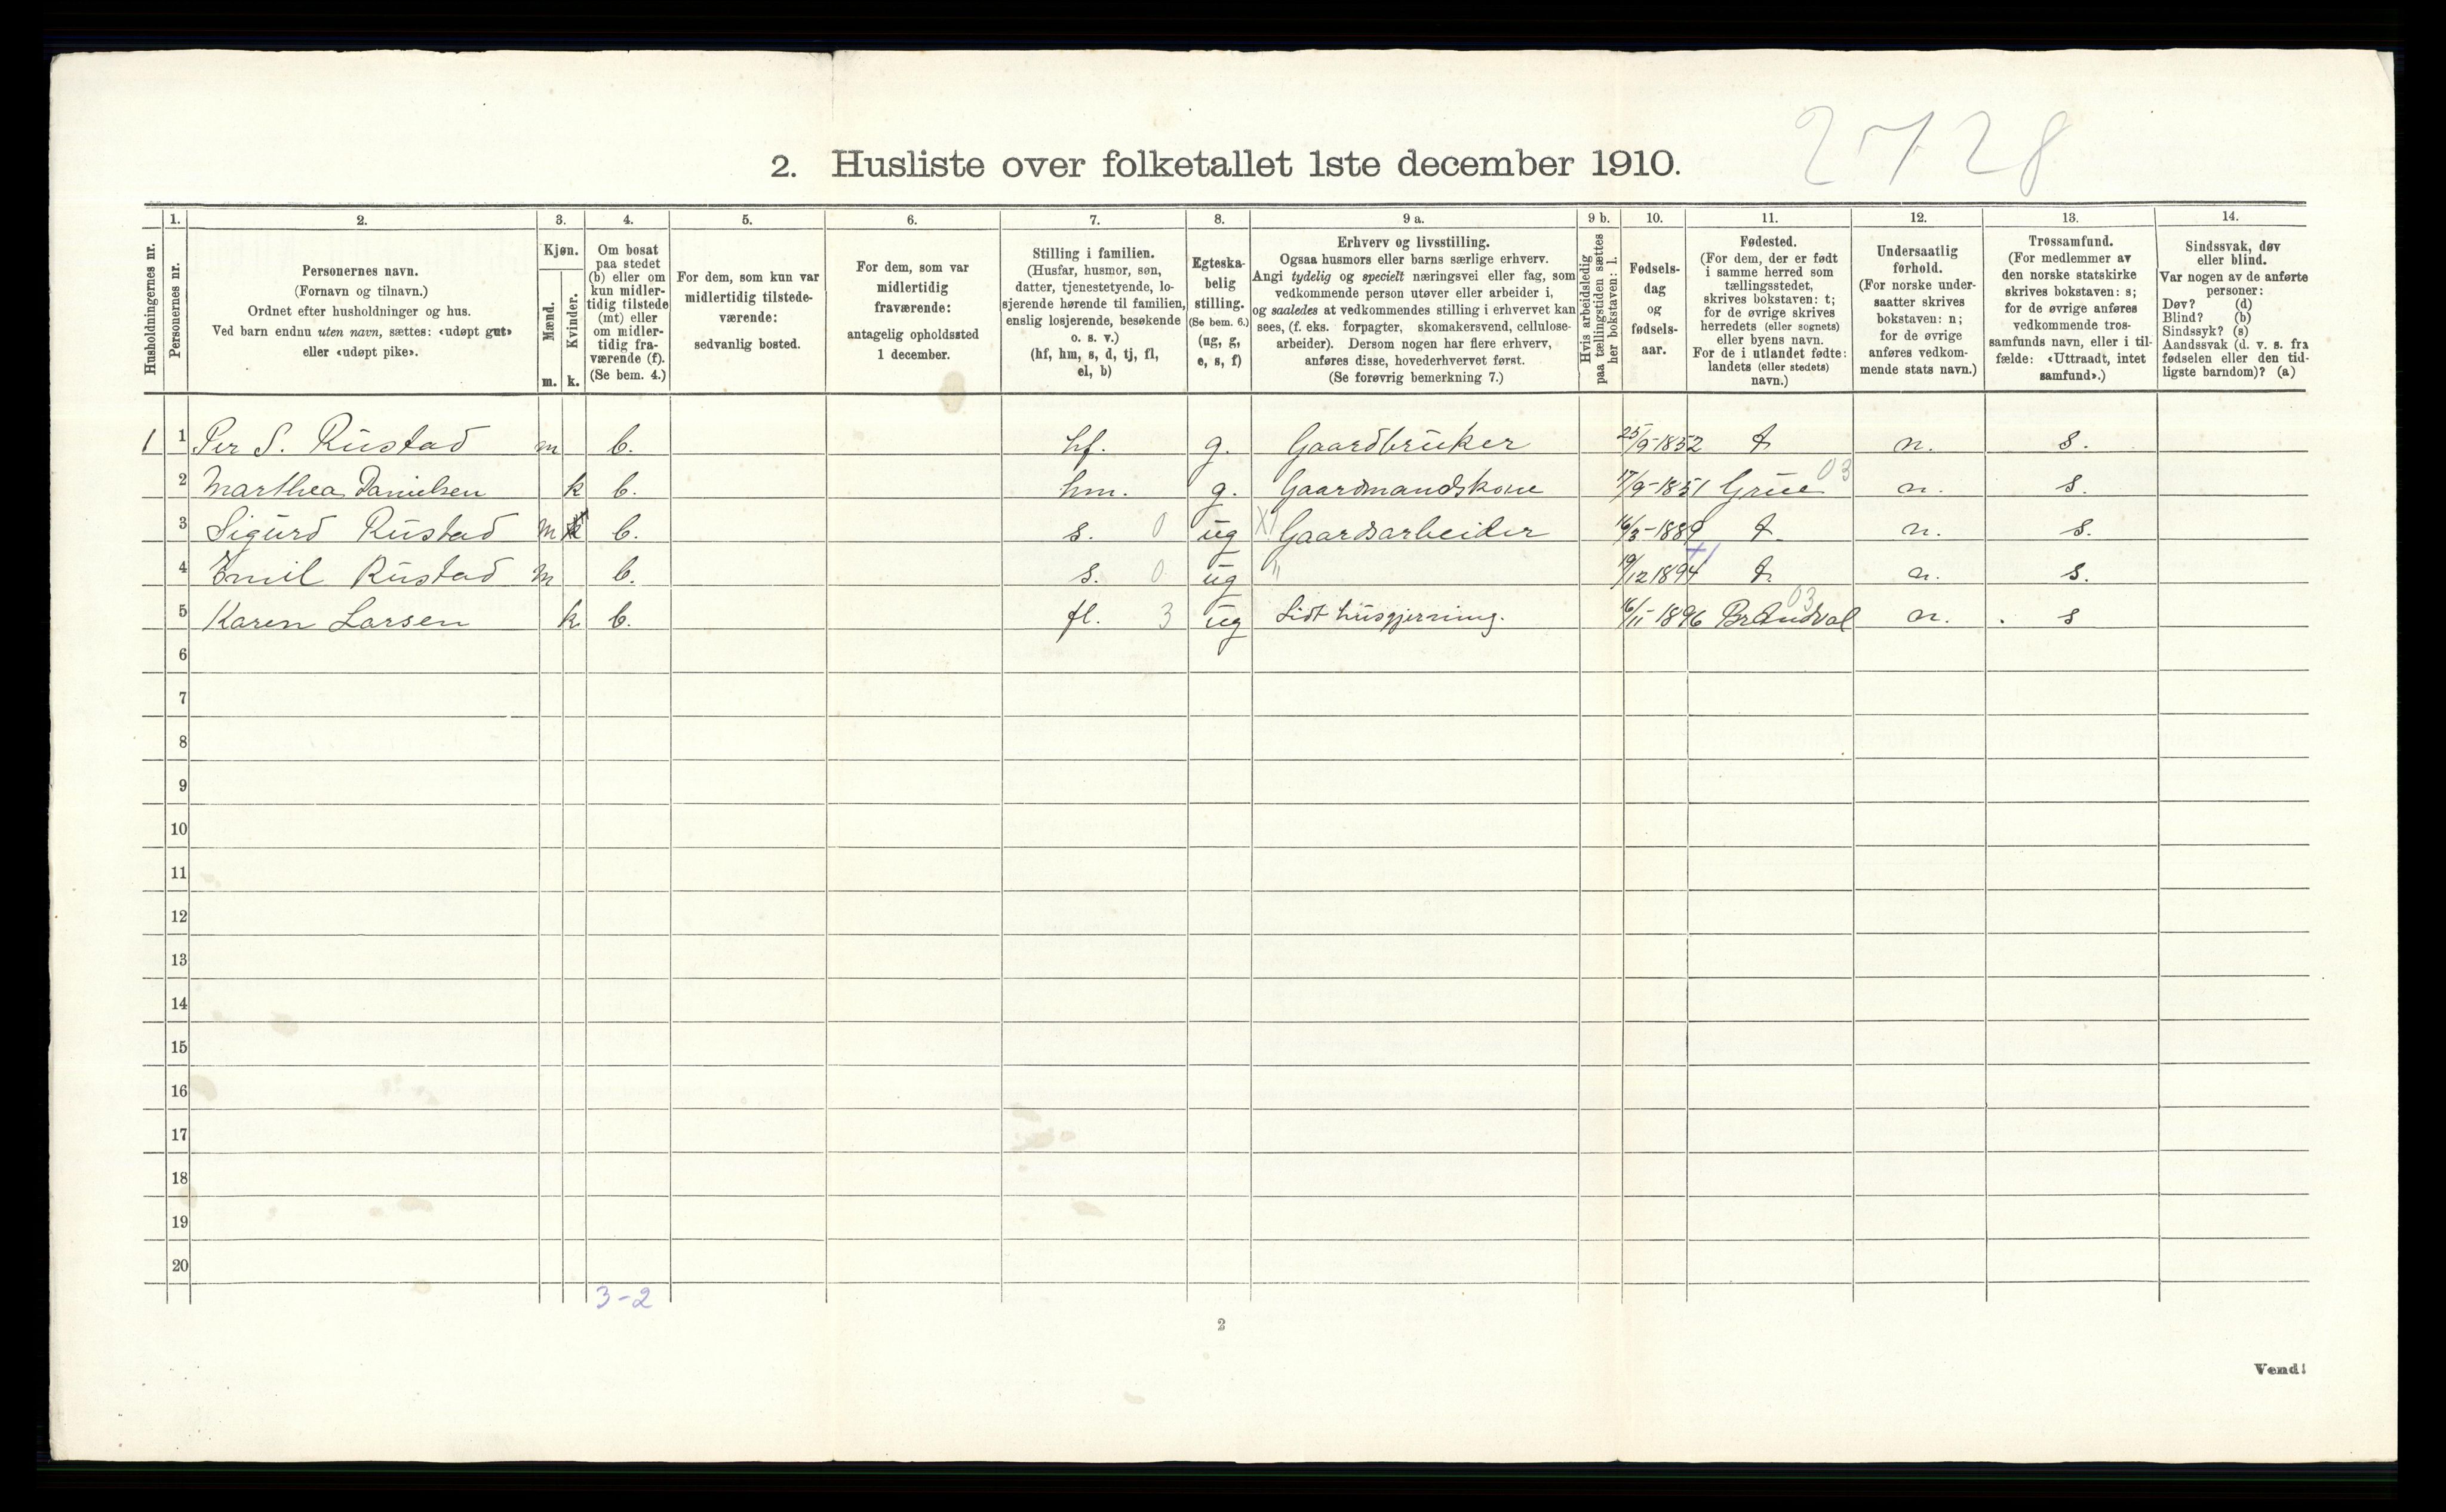 2728
2. Husliste over folketallet 1ste december 1910.
Husholdningernes nr.
1.
Personernes nr.
2.
Personernes navn.
(Fornavn og tilnavn.)
Ordnet efter husholdninger og hus.
Ved barn endnu uten navn, sættes: «udøpt gut»
eller «udøpt pike».
3.
Kjøn.
Mænd.
m.
Kvinder.
k.
4.
Om bosat
paa stedet
(b) eller om
kun midler-
tidig tilstede
(mt) eller
om midler-
tidig fra-
værende (f).
(Se bem. 4.)
5.
For dem, som kun var
midlertidig tilstede-
værende:
sedvanlig bosted.
6.
For dem, som var
midlertidig
fraværende:
antagelig opholdssted
1 december.
7.
Stilling i familien.
(Husfar, husmor, søn,
datter, tjenestetyende, lo-
sjerende hørende til familien,
enslig losjerende, besøkende
o. s. v.)
(hf, hm, s, d, tj, fl,
el, b)
8.
Egteska-
belig
stilling.
(Se bem. 6.)
(ug, g,
e, s, f)
9 a.
Erhverv og livsstilling.
Ogsaa husmors eller barns særlige erhverv.
Angi tydelig og specielt næringsvei eller fag, som
vedkommende person utøver eller arbeider i,
og saaledes at vedkommendes stilling i erhvervet kan
sees, (f. eks. forpagter, skomakersvend, cellulose-
arbeider). Dersom nogen har flere erhverv,
anføres disse, hovederhvervet først.
(Se forøvrig bemerkning 7.)
9 b.
Hvis arbeidsledig
paa tællingstiden sættes
her bokstaven: l.
10.
Fødsels-
dag
og
fødsels-
aar.
11.
Fødested.
(For dem, der er født
i samme herred som
tællingsstedet,
skrives bokstaven: t;
for de øvrige skrives
herredets (eller sognets)
eller byens navn.
For de i utlandet fødte:
landets (eller stedets)
navn.)
12.
Undersaatlig
forhold.
(For norske under-
saatter skrives
bokstaven: n;
for de øvrige
anføres vedkom-
mende stats navn.)
13.
Trossamfund.
(For medlemmer av
den norske statskirke
skrives bokstaven: s;
for de øvrige anføres
vedkommende tros-
samfunds navn, eller i til-
fælde: «Uttraadt, intet
samfund».)
14.
Sindssvak, døv
eller blind.
Var nogen av de anførte
personer:
Døv? (d)
Blind? (b)
Sindssyk? (s)
Aandssvak (d. v. s. fra
fødselen eller den tid-
ligste barndom)? (a)
1 1 Per S. Rustad m b. hf. g. Gaardbruker 25/9-1852 t n. s.
2 Marthea Danielsen k b. hm. g. Gaardmandskone 17/9-1851 Grue 03 n. s.
3 Sigurd Rustad m k b. s. 0 ug X) Gaardsarbeider 16/3-1889 t. n. s.
4 Emil Rustad m b. s. 0 ug " 19/12 1894 t. n. s.
5 Karen Larsen k b. fl. 3 ug Lidt husgjerning. 16/11-1896 Brandval 03 n. s
6
7
8
9
10
11
12
13
14
15
16
17
18
19
20
3-2
2
Vend!